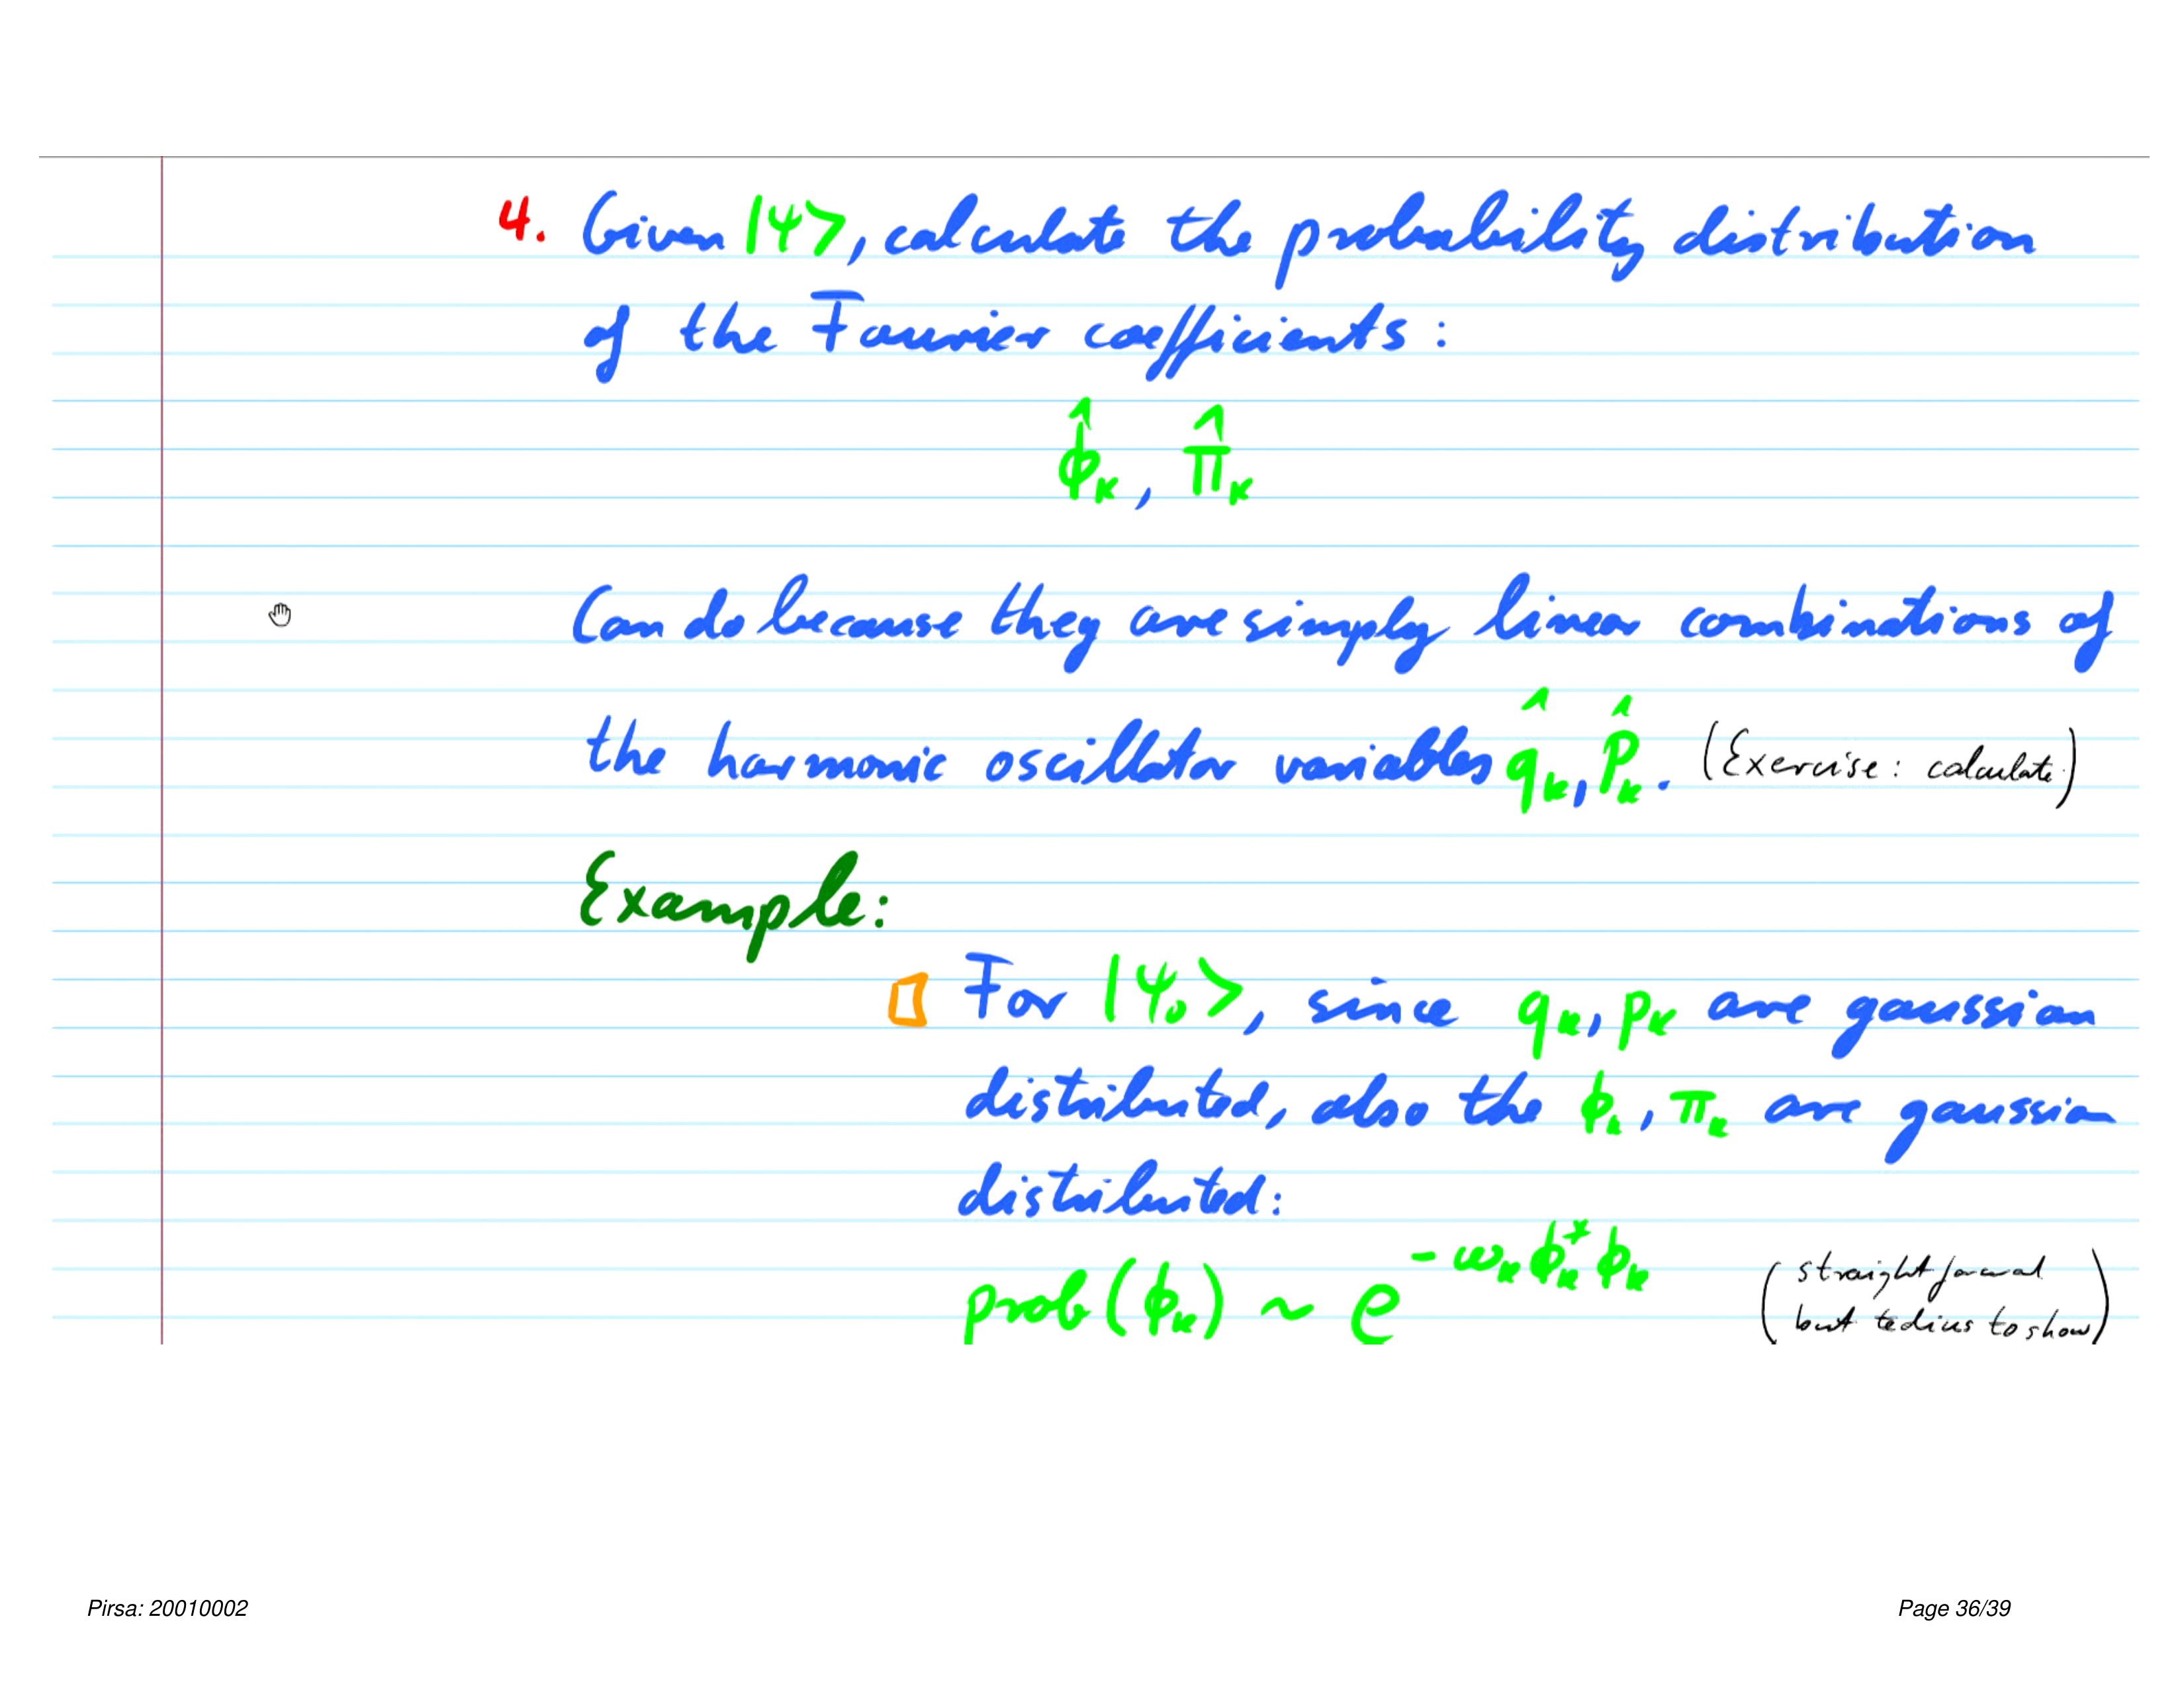 4. Given |ψ>, calculate the probability distribution
of the Fourier coefficients:
ϕ̂ₖ, π̂ₖ
Can do because they are simply linear combinations of
the harmonic oscillator variables q̂ₖ, p̂ₖ. (Exercise: calculate)
Example:
For |ψ₀>, since qₖ, pₖ are gaussian
distributed, also the ϕₖ, πₖ are gaussian
distributed:
prob(ϕₖ) ~ e^{-ωₖ ϕₖ* ϕₖ} (straightforward
but tedius to show)
Pirsa: 20010002
Page 36/39